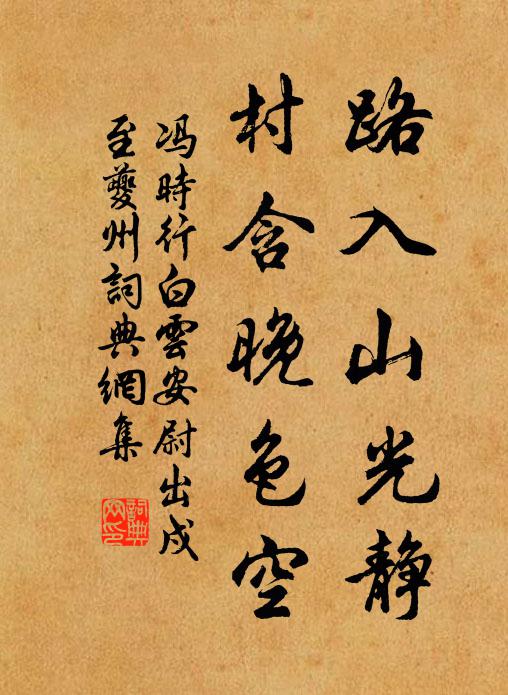 路入山光静
村含晚色空
冯時行白雲安尉出戍
至夔州詞典網集
詞典
网印